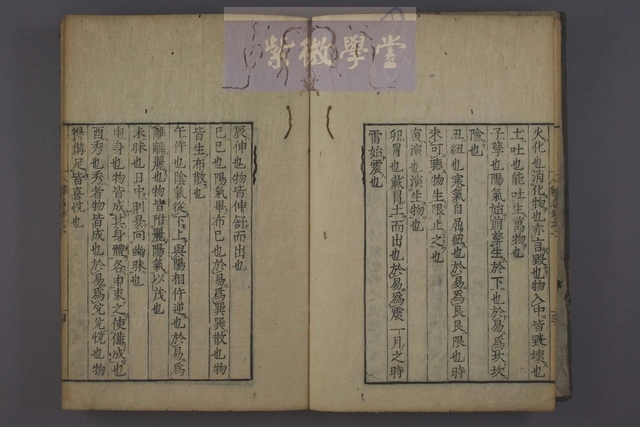 紫微學堂
火化也消化物也亦言毀也物入中皆毀壞也
土吐也能吐生萬物也
子孳也陽氣始萌孳生於下也於易爲坎坎
險也
丑紐也寒氣自屈紐也於易爲艮艮限也時
未可聽物生限止之也
寅演也演生物也
卯冒也載冒土而出也於易爲震二月之時
雷始震也
辰伸也物皆伸舒而出也
巳已也陽氣畢布已也於易爲巽巽散也物
皆生布散也
午仵也陰氣從下上與陽相仵逆也於易爲
離離麗也物皆附麗陽氣以茂也
未昧也日中則昃向幽昧也
申身也物皆成其身體各申束之使備成也
酉秀也秀者物皆成也於易爲兌兌悅也物
得備足皆喜悅也